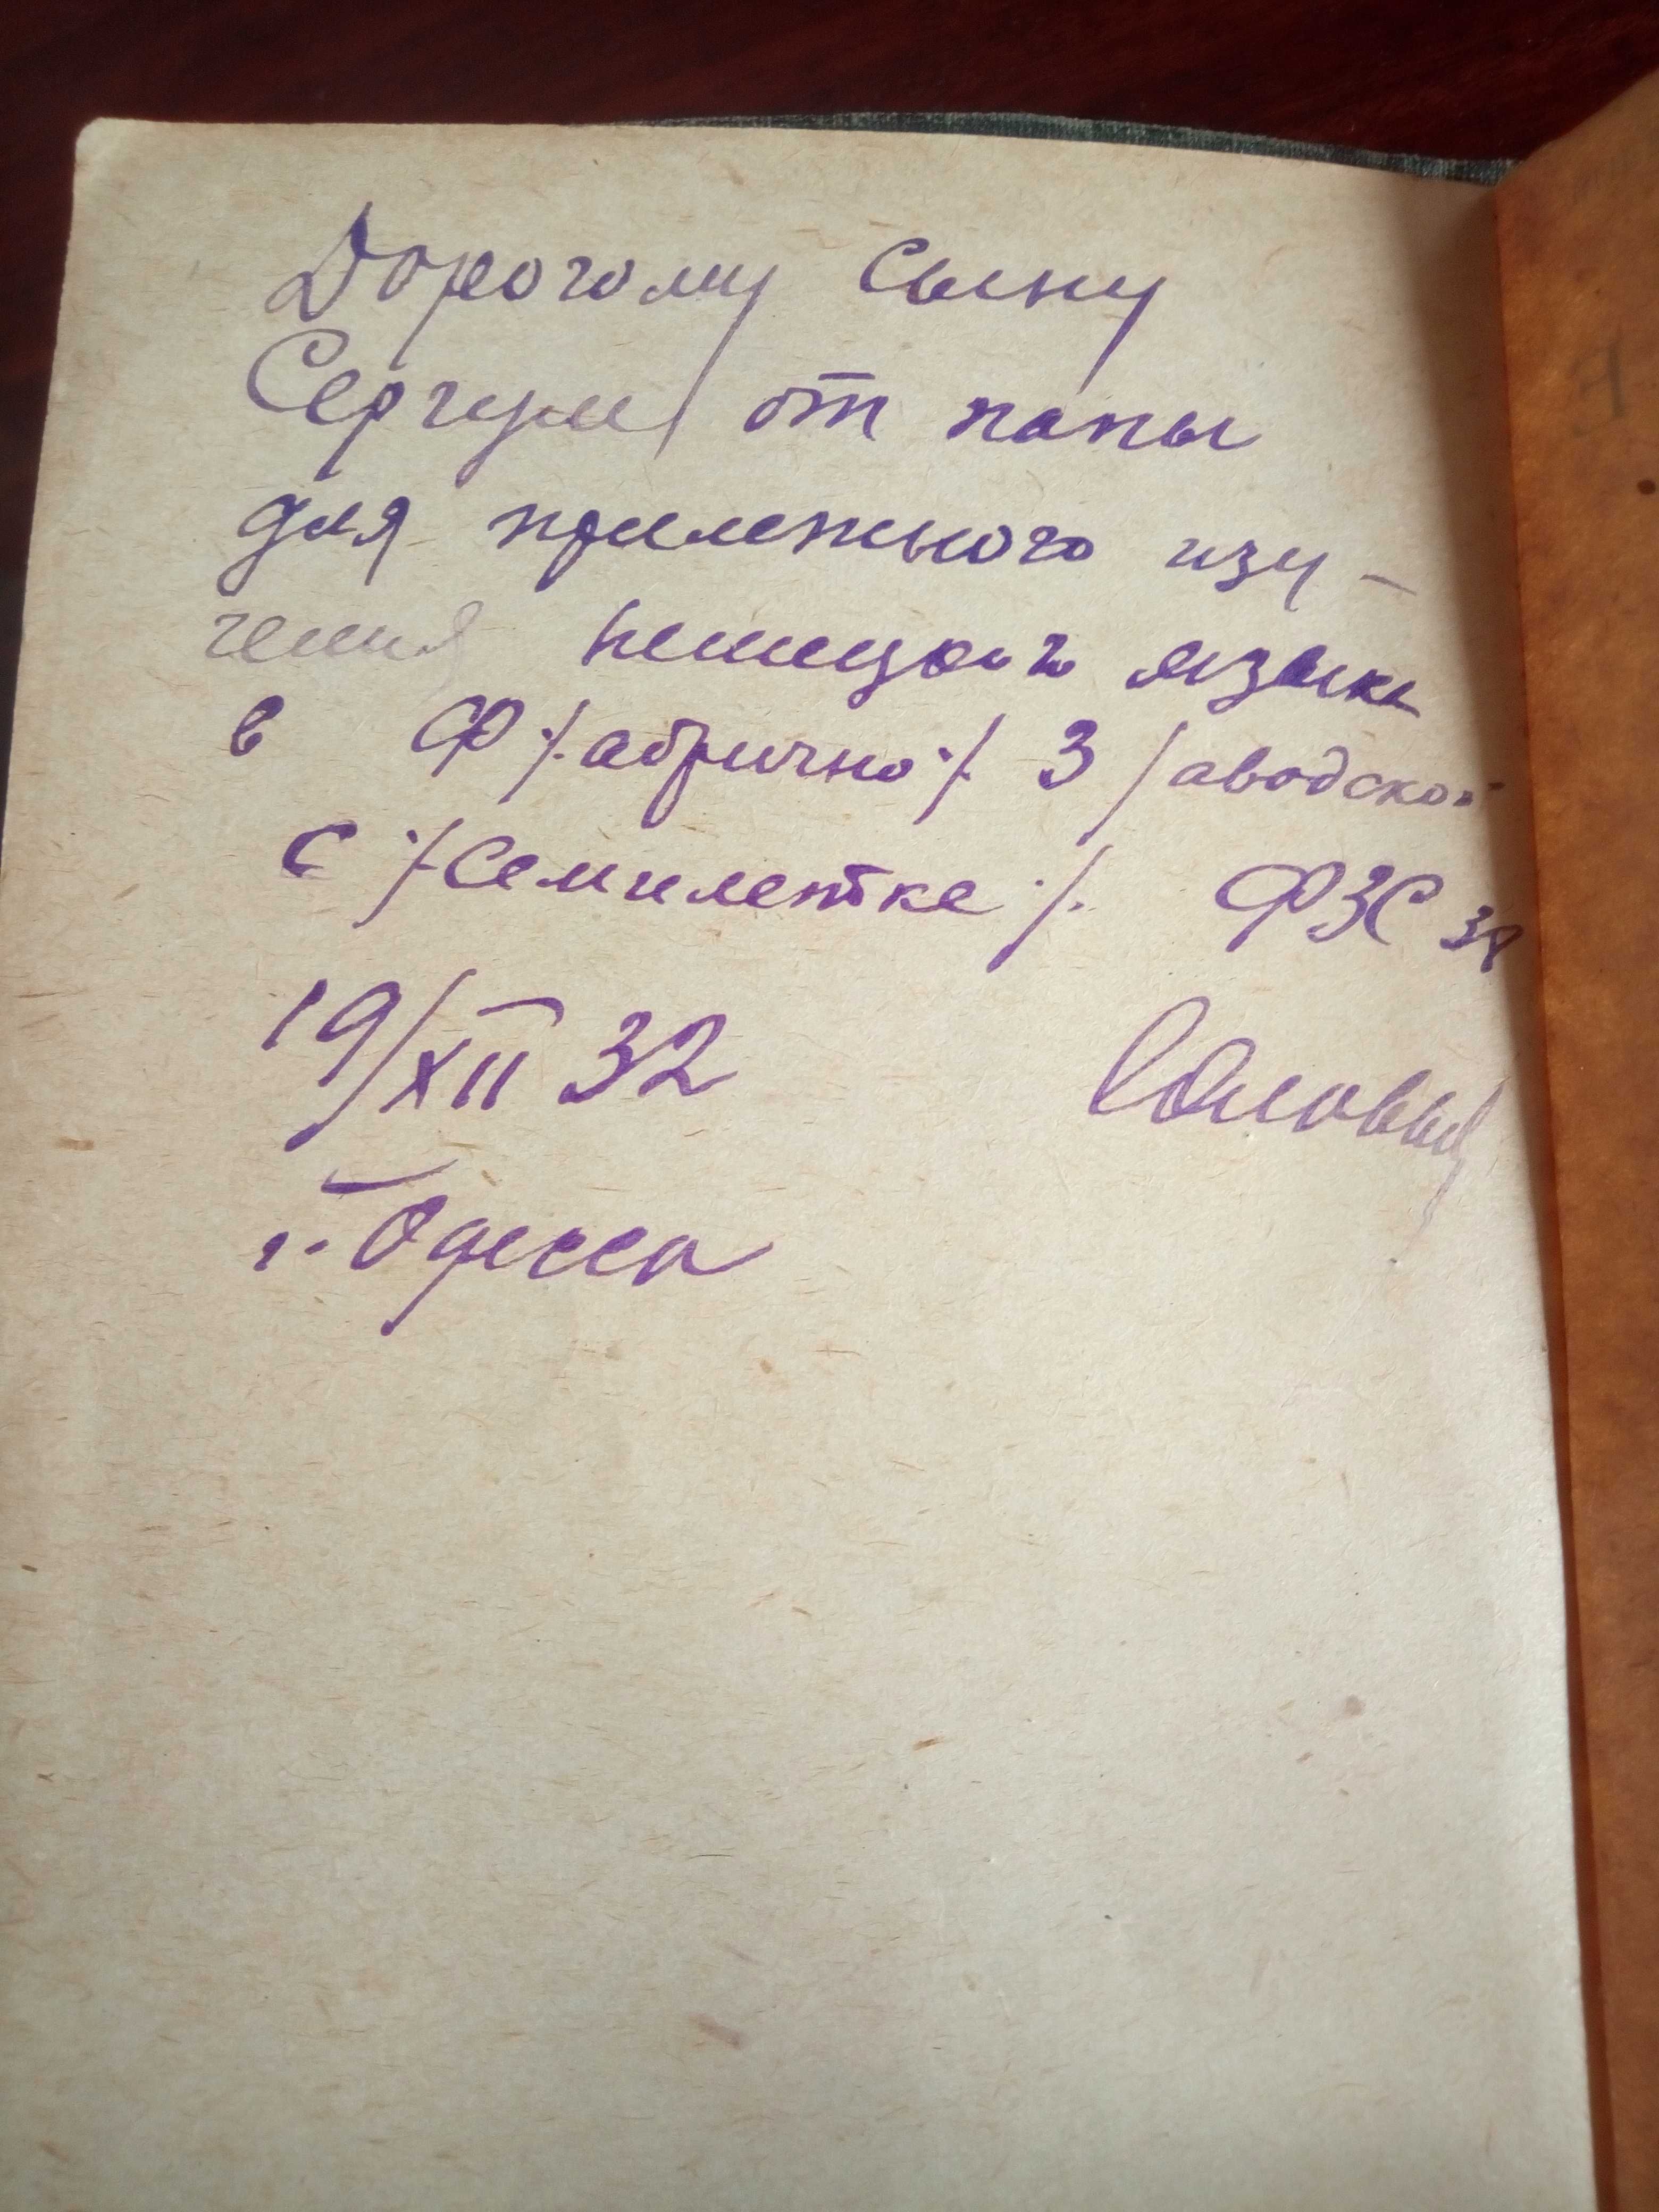 Дорогому Сыну
от папы
для прилежного изу-
чения немецкого языка
в Ф ./абрично ./ З /аводской
С ./Семилетке ./. ФЗС
19/XII 32
г. Одесса